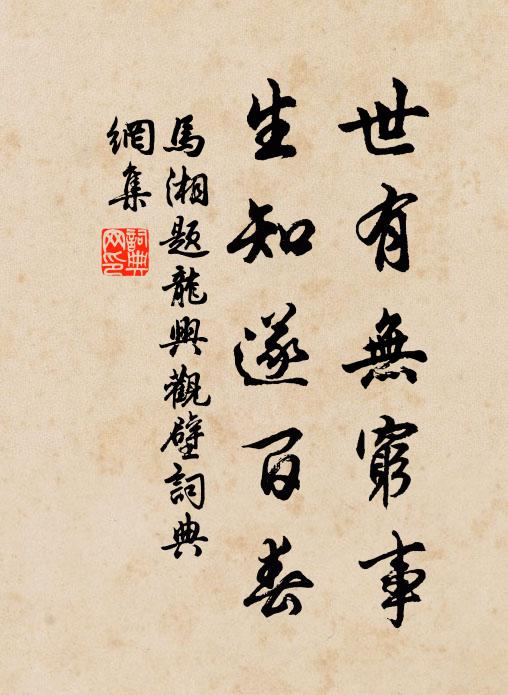 世有無窮事
生知遂百春
馬湘題龍興觀壁詞典
網集
詞典
网印